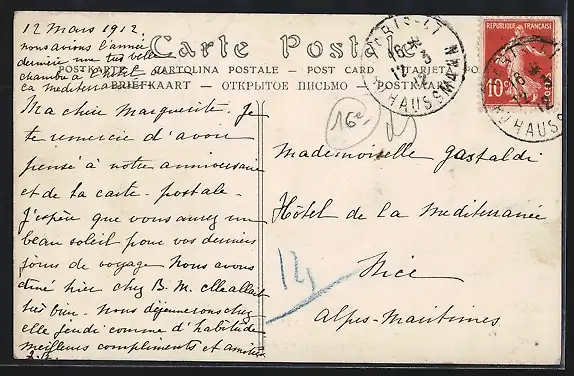 12 Mars 1912
nous avions l'année
dernière une très belle
chambre à l'hôtel de
la mediteranée
Carte Postale
POSTKARTE — CARTOLINA POSTALE — POST CARD — TARJETA POSTAL
BRIEFKAART — ОТКРЫТОЕ ПИСЬМО — POSTKAART
Ma chère Marguerite. Je
te remercie d'avoir
pensé à notre anniversaire
et de la carte-postale.
J'espère que vous aurez un
beau soleil pour vos derniers
jours de voyage Nous avons
diné hier chez B. M. elle allait
très bien. Nous déjeunerons chez
elle jeudi comme d'habitude
meilleurs compliments et amitiés
Mademoiselle Gastaldi
Hôtel de la Mediteranée
Nice
Alpes-Maritimes
16e
14
REPUBLIQUE FRANÇAISE
10c
POSTES
PARIS
HAUSSMANN